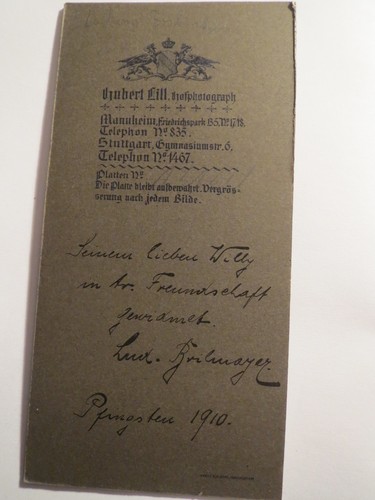 Hubert Lill, Hofphotograph
Mannheim, Friedrichspark B5, No 17/18.
Telephon No 835.
Stuttgart, Gymnasiumstr. 6,
Telephon No 1467.
Platten No
Die Platte bleibt aufbewahrt. Vergrös-
serung nach jedem Bilde.
Seinem lieben Willy
in tr. Freundschaft
gewidmet.
Lud.
Pfingsten 1910.